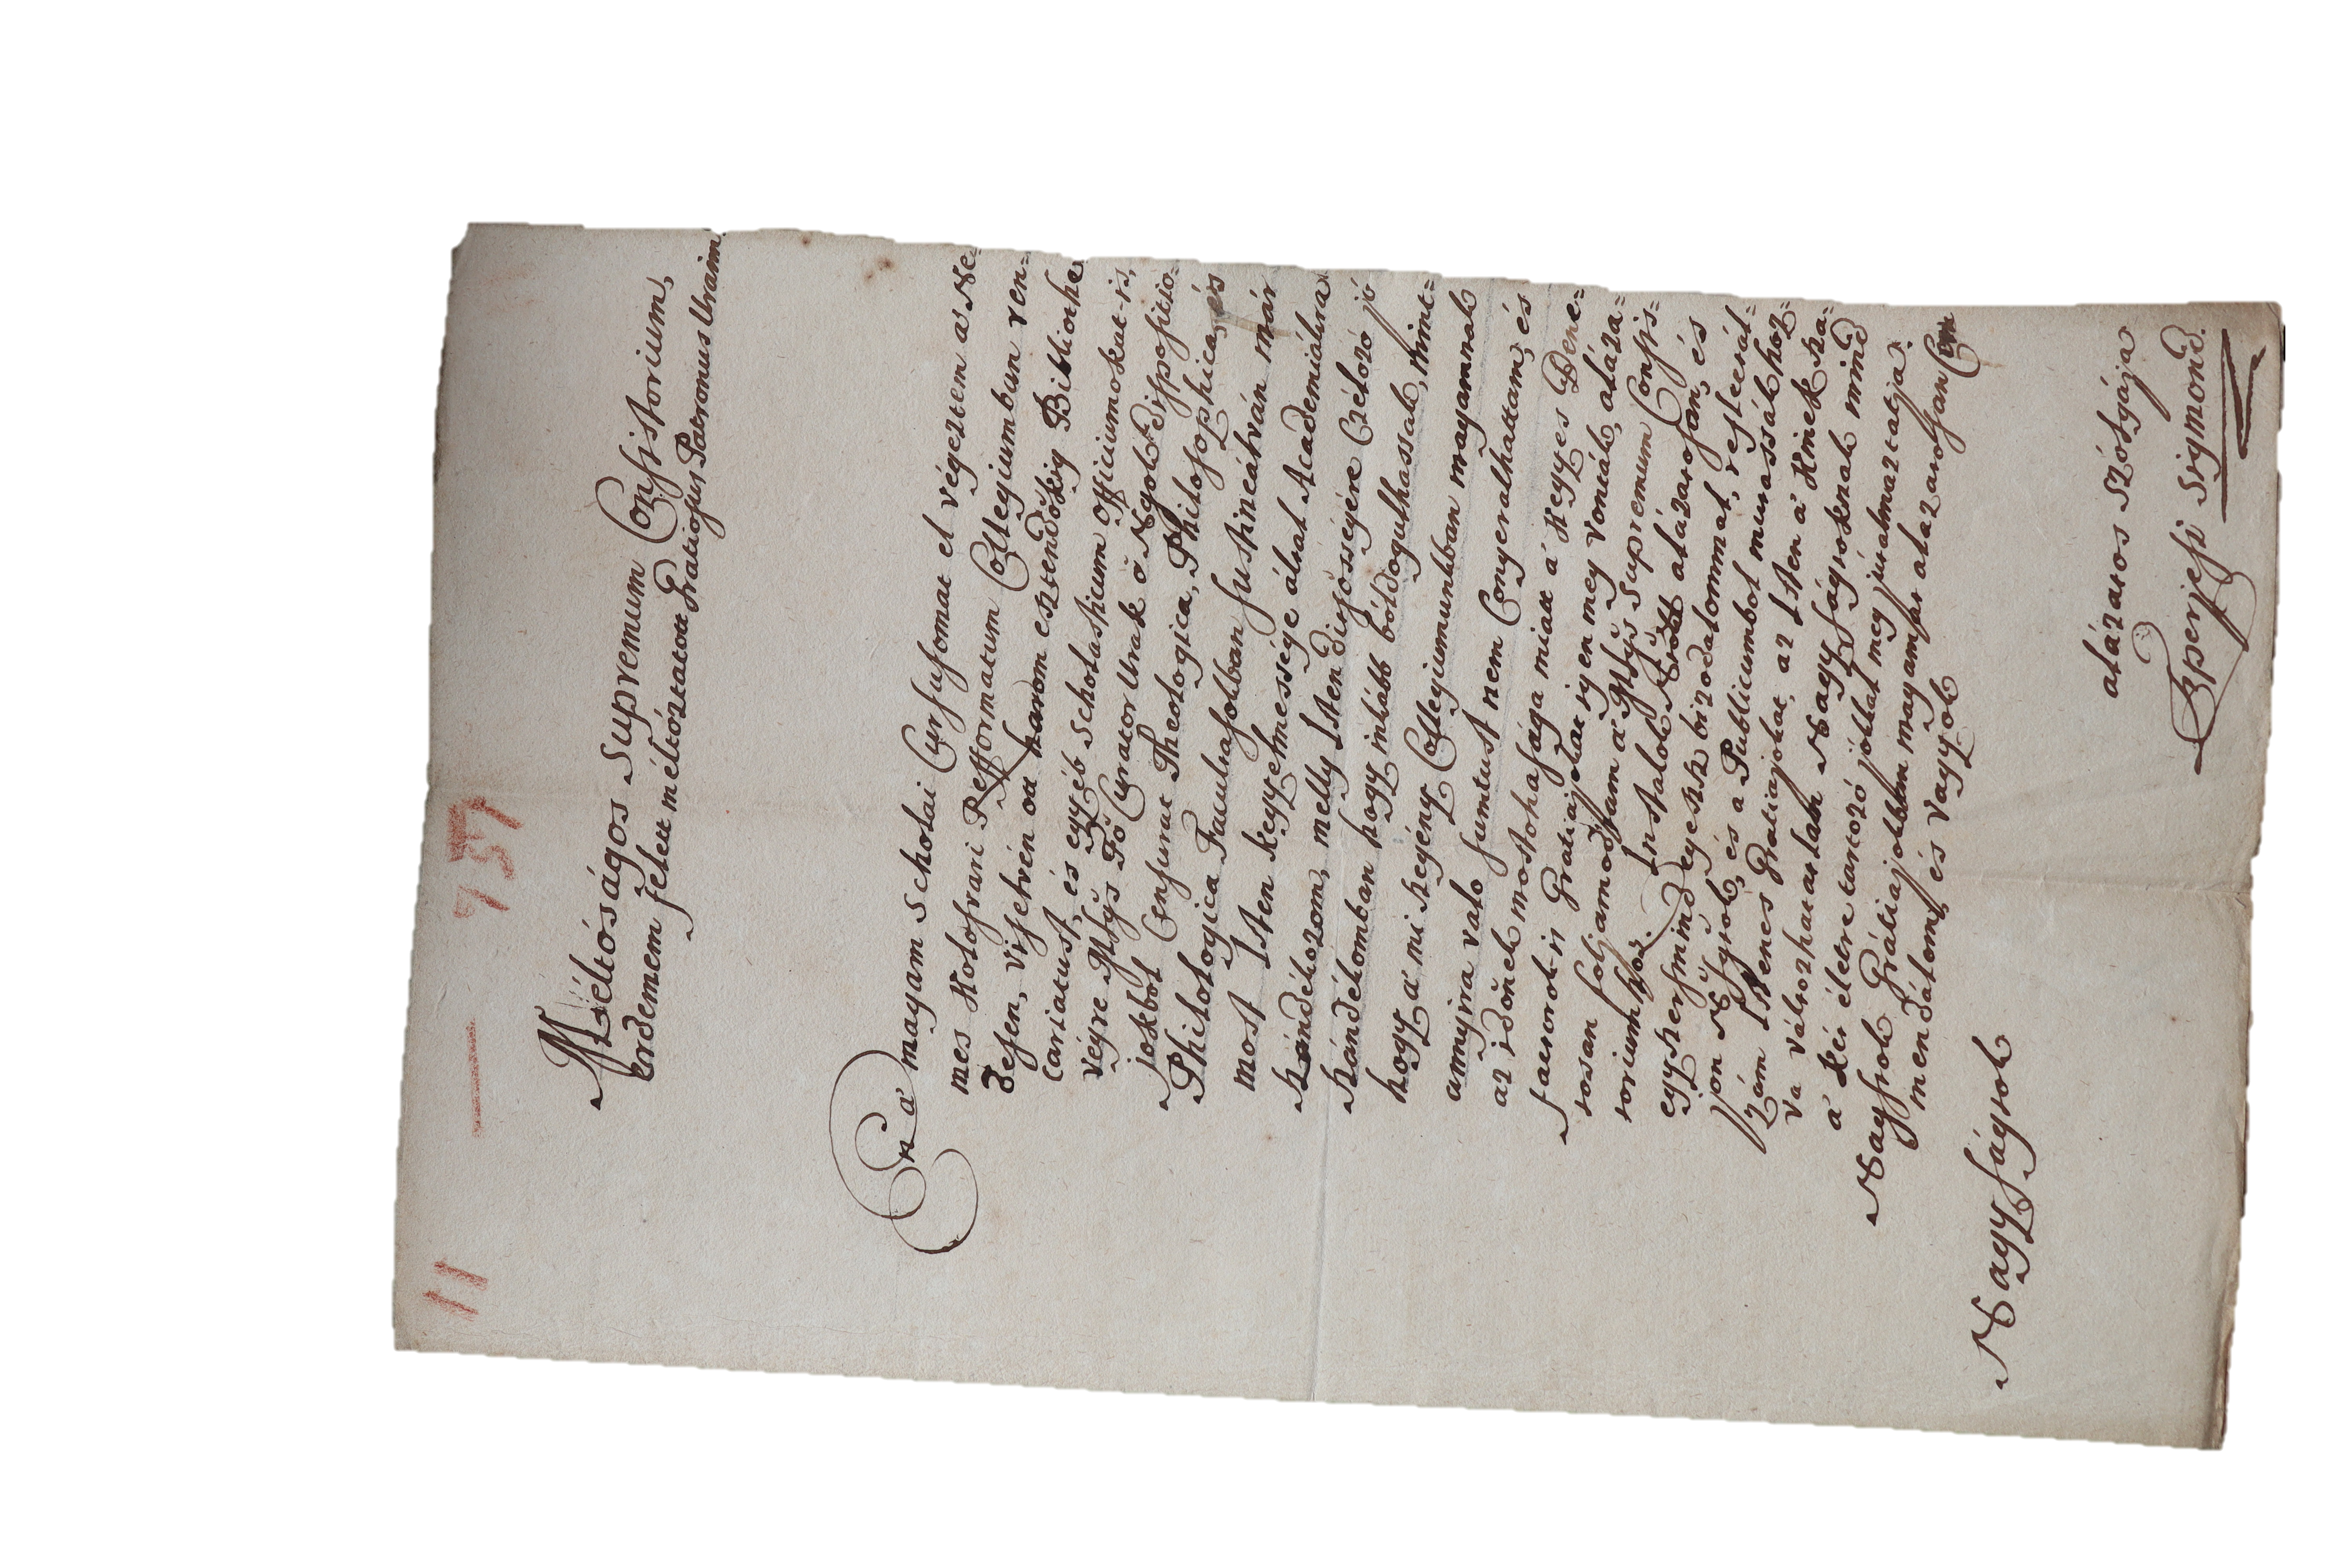 11 757
Méltóságos Supremum Consistorium,
Érdemem felett méltóztatott Gratiosus Patronus Uraim
Én á magam Scholai Cursusomat el végeztem a Ne=
mes Kolosvari Reformatum Collegiumban ren=
desen, viselvén ott három esztendőkig Bibliothe
cariatust, és egyéb Scholasticum Officiumokat-is,
végre Mlgs Fő Curator Urak ő Ngok dispositio=
jokbol Censurat Theologica, Philosophica, és
Philologica Facultasokban sustineálván már
most Isten kegyelmessége által Academiákra
szándékozom, melly Isten ditsőssegére Czélozó jó
szándékomban hogy inkább bóldogulhassak, mint=
hogy a' mi szegény Collegiumunkban magamnak
annyira valo sumtust nem Congeralhattam, és
az időnek mostohasága miatt á Kegyes Bene=
factorok-is Gratiajokat igen meg vonták, aláza=
tosan folyamodtam a' Mlgs Supremum Consis=
toriumhoz. Instalok alázatoson, és
egyszersmind egesz bizodalommal, résleltes-
son Ngtok, és a Publicumbol mutassák hoz=
zám Istenes Gratiajokat, az Isten a' Kinek sza=
va változhatatlan Nagyságtoknak mind
a' két életre tartozó jókkal meg jutalmaztatja.
Nagyságtok Grátiajokban magamat alazatosan Com
mendálom, és vagyok
Nagyságtok
alázatos szólgája
Eperjesi Sigmond.